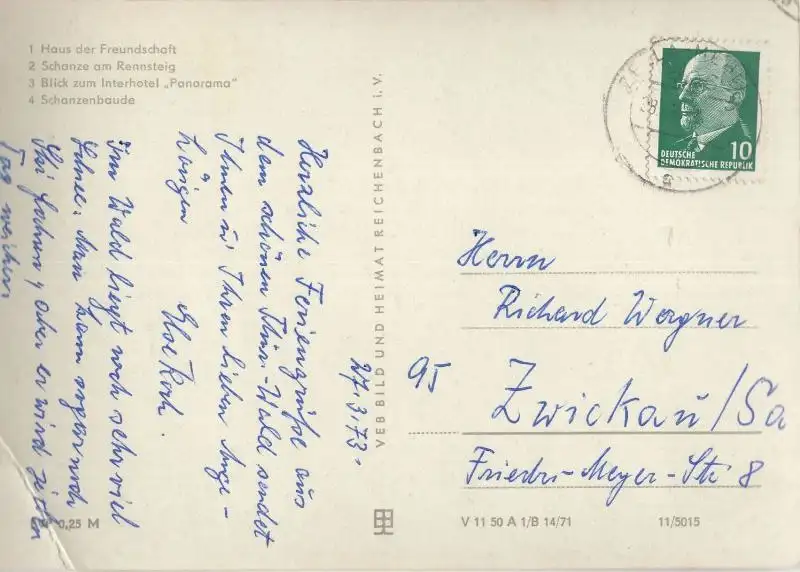 1 Haus der Freundschaft
2 Schanze am Rennsteig
3 Blick zum Interhotel „Panorama"
4 Schanzenbaude
27.3.73.
Herzliche Feriengrüße aus
dem schönen Thür. Wald sendet
Ihnen u. Ihren lieben Ange-
hörigen
Koch.
Im Wald liegt noch sehr viel
Schnee. Man kann sogar noch
Ski fahren, aber er wird
Tag weicher.
0,25 M
VEB BILD UND HEIMAT REICHENBACH i. V.
DEUTSCHE
DEMOKRATISCHE REPUBLIK
10
Herrn
Richard Wergner
95 Zwickau/Sa
Friedr.-Meyer-Str. 8
V 11 50 A 1/B 14/71 11/5015